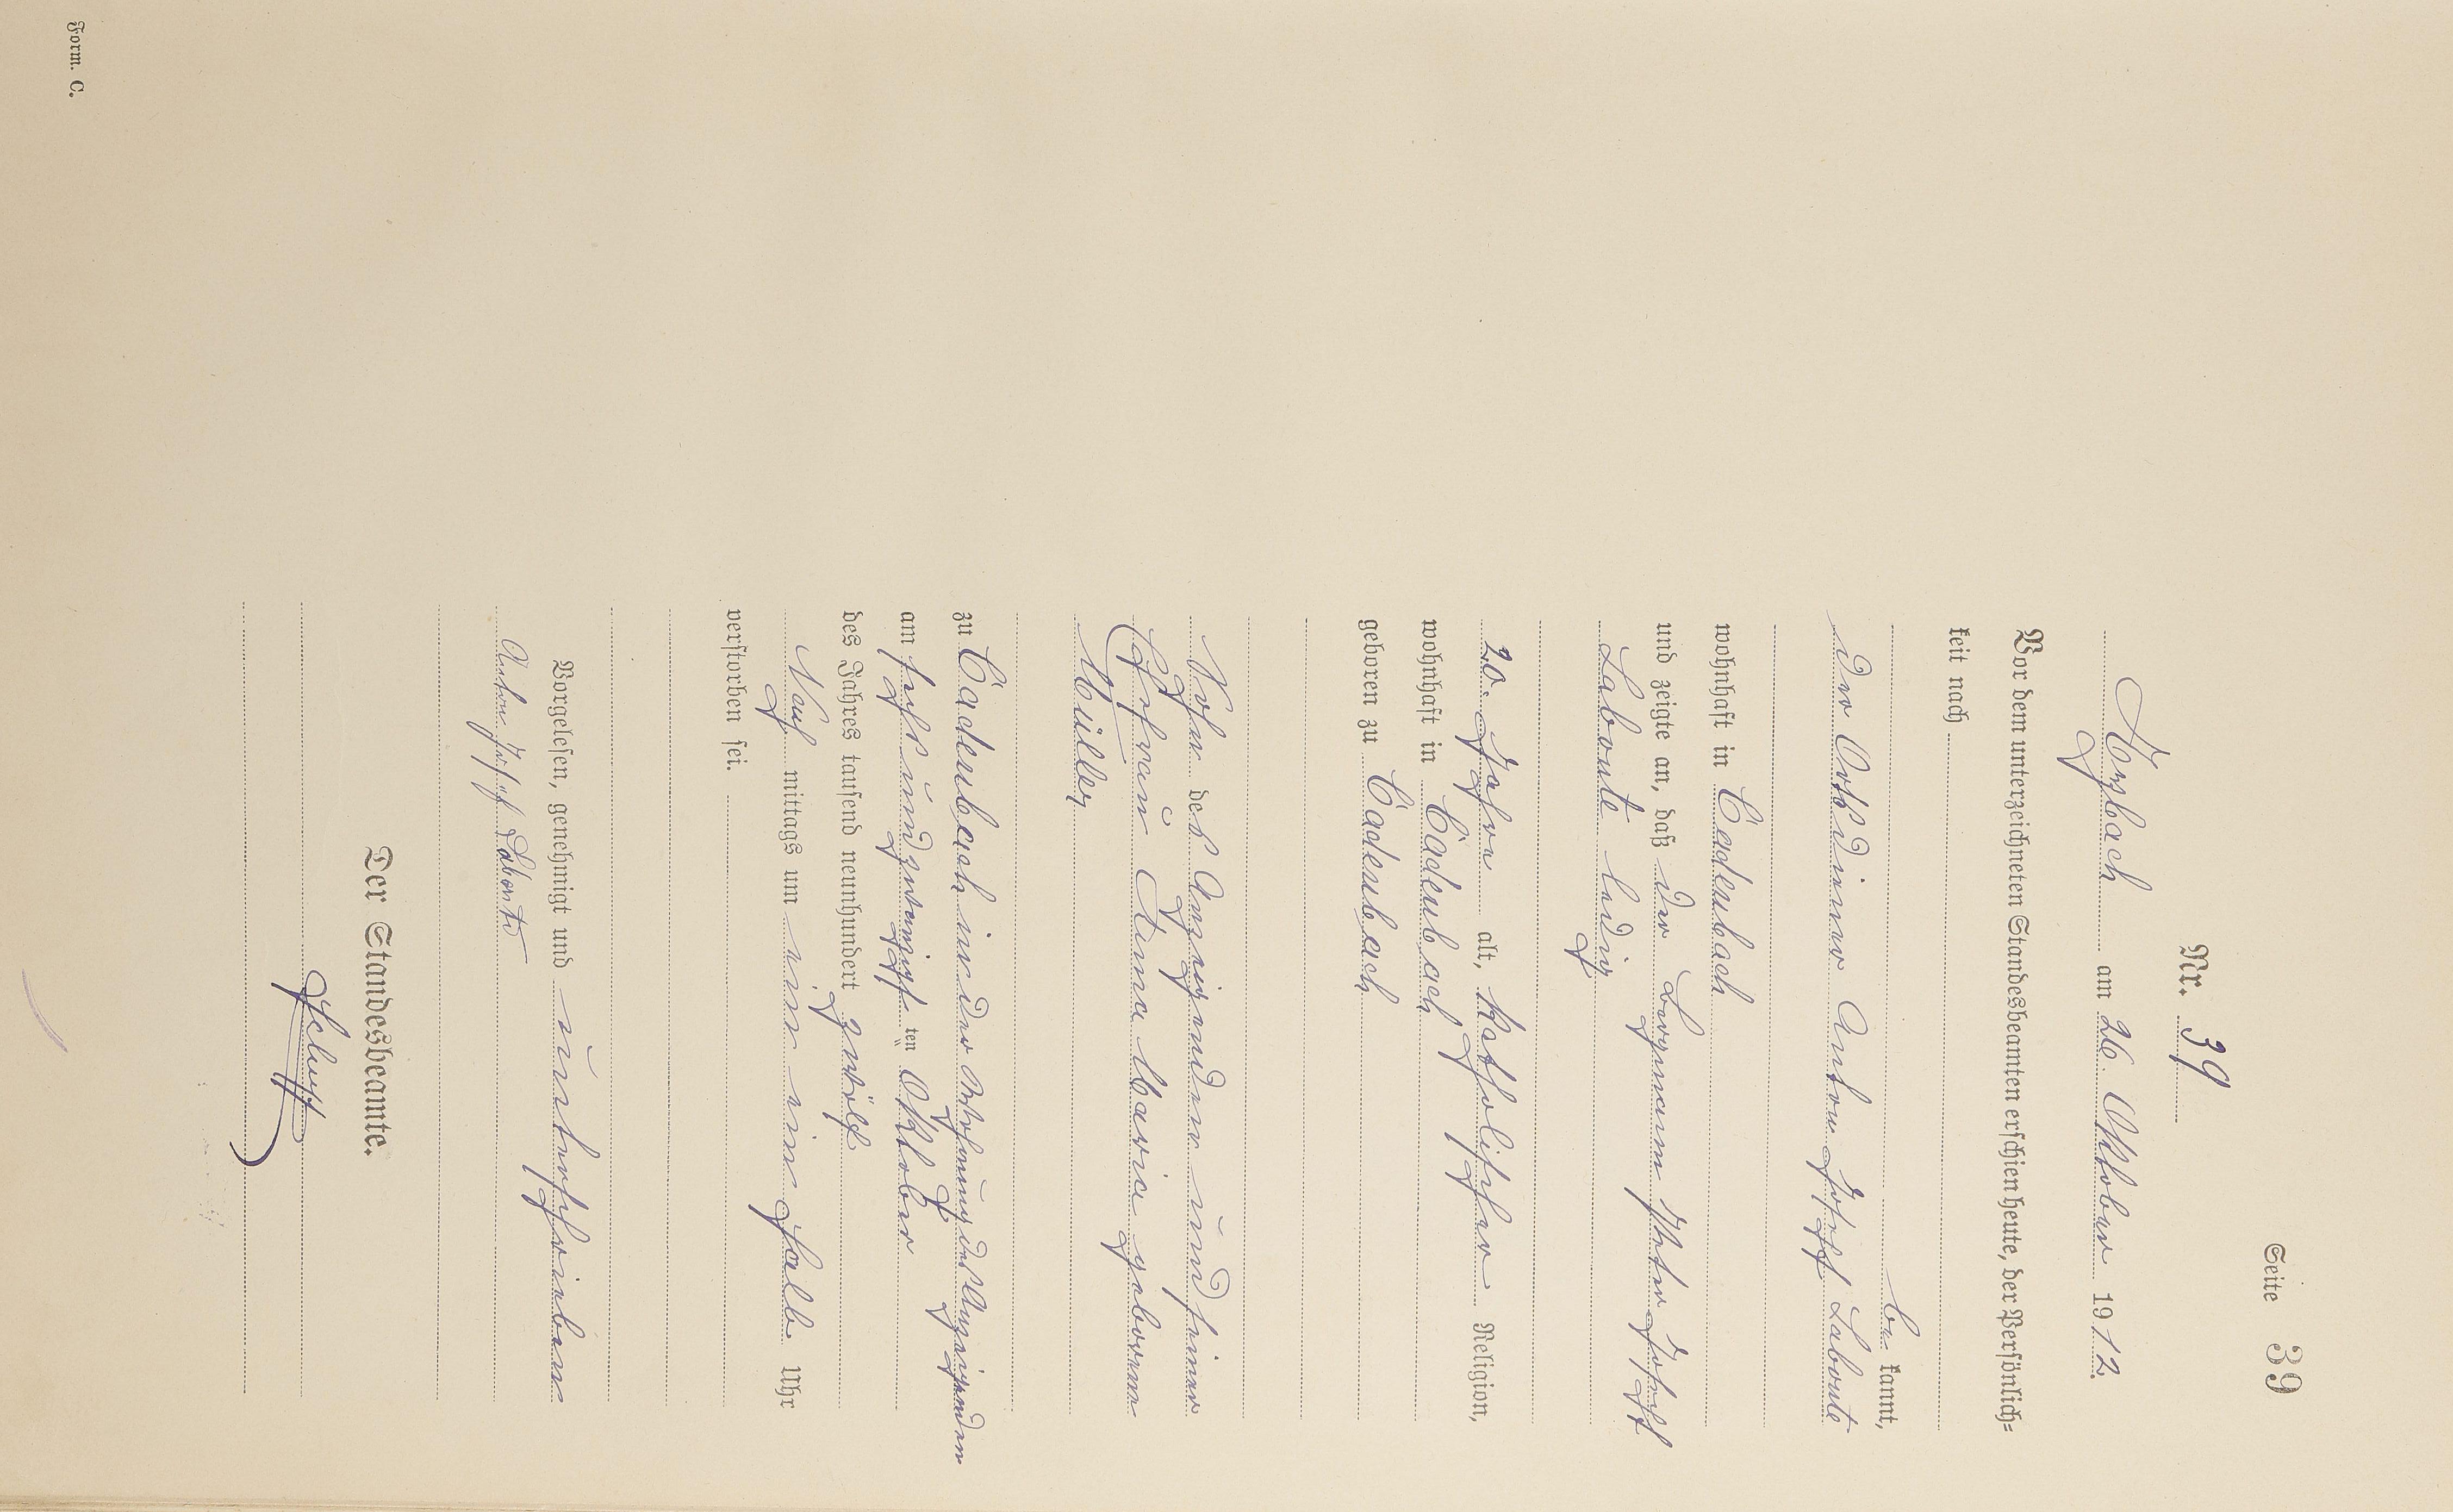 Seite 39
Nr. 39
am 26. Oktober 1912.
Vor dem unterzeichneten Standesbeamten erschien heute, der Persönlich-
keit nach
be kannt,
der Ortsdiener Anton Josef Labonte
wohnhaft in Cadenbach
und zeigte an, daß der Bergmann Peter Joseph
Labonte ledig
20. Jahre alt, katholischer Religion,
wohnhaft in Cadenbach
geboren zu Cadenbach
Sohn des Anzeigenden und seiner
Ehefrau Anna Maria geborenen
Müller
zu Cadenbach in der Wohnung des Anzeigenden
am sechs und zwanzigsten Oktober
des Jahres tausend neunhundert zwölf
Nach mittags um ein ein halb Uhr
verstorben sei.
Vorgelesen, genehmigt und unterschrieben
Anton Josef Labonte
Der Standesbeamte.
Form. C.